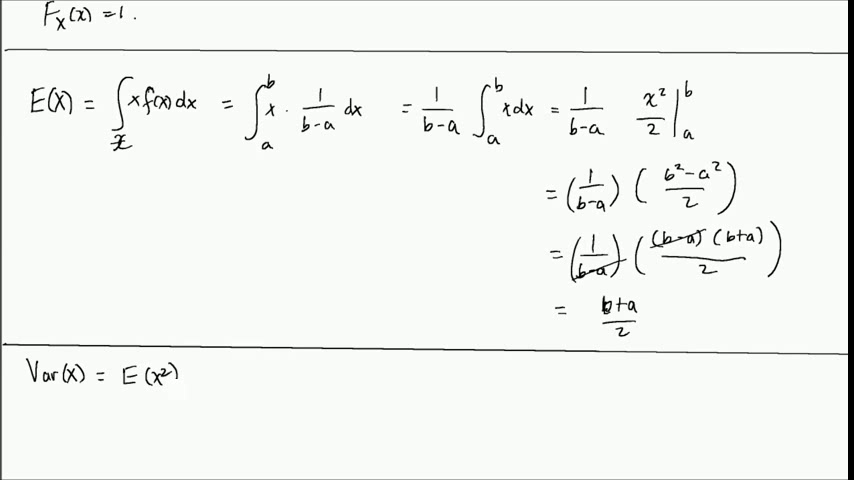 F_X(x) = 1.
E(X) = ∫_𝒳 x f(x) dx = ∫_a^b x · 1/(b-a) dx = 1/(b-a) ∫_a^b x dx = 1/(b-a) x²/2 |_a^b
= (1/(b-a)) ((b²-a²)/2)
= (1/(b-a)) ((b-a)(b+a)/2)
= (b+a)/2
Var(X) = E(x²)